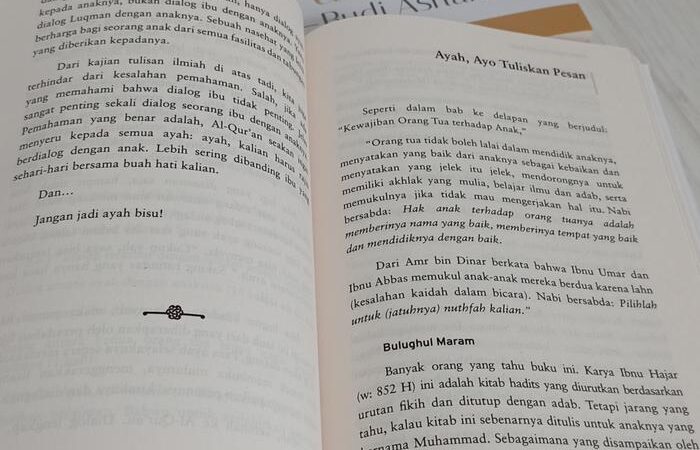 kepada anaknya, bukan dialog ibu dengan anaknya, hanya dialog
dialog Luqman dengan anaknya. Sebuah nasehat yang
berharga bagi seorang anak dari semua fasilitas dan
yang diberikan kepadanya.
Dari kajian tulisan ilmiah di atas tadi, kita
terhindar dari kesalahan pemahaman. Salah, jika
yang memahami bahwa dialog ibu tidak penting.
sangat penting sekali dialog seorang ibu dengan
Pemahaman yang benar adalah, Al-Qur'an seakan
menyeru kepada semua ayah: ayah, kalian harus
berdialog dengan anak. Lebih sering dibanding ibu
sehari-hari bersama buah hati kalian.
Dan...
Jangan jadi ayah bisu!
Budi Ashari
Ayah, Ayo Tuliskan Pesan
Seperti dalam bab ke delapan yang berjudul:
"Kewajiban Orang Tua terhadap Anak,"
"Orang tua tidak boleh lalai dalam mendidik anaknya,
menyatakan yang baik dari anaknya sebagai kebaikan dan
menyatakan yang jelek itu jelek, mendorongnya untuk
memiliki akhlak yang mulia, belajar ilmu dan adab, serta
memukulnya jika tidak mau mengerjakan hal itu. Nabi
bersabda: Hak anak terhadap orang tuanya adalah
memberinya nama yang baik, memberinya tempat yang baik
dan mendidiknya dengan baik.
Dari Amr bin Dinar berkata bahwa Ibnu Umar dan
Ibnu Abbas memukul anak-anak mereka berdua karena lahn
(kesalahan kaidah dalam bicara). Nabi bersabda: Pilihlah
untuk (jatuhnya) nuthfah kalian."
Bulughul Maram
Banyak orang yang tahu buku ini. Karya Ibnu Hajar
(w: 852 H) ini adalah kitab hadits yang diurutkan berdasarkan
urutan fikih dan ditutup dengan adab. Tetapi jarang yang
tahu, kalau kitab ini sebenarnya ditulis untuk anaknya yang
bernama Muhammad. Sebagaimana yang disampaikan oleh